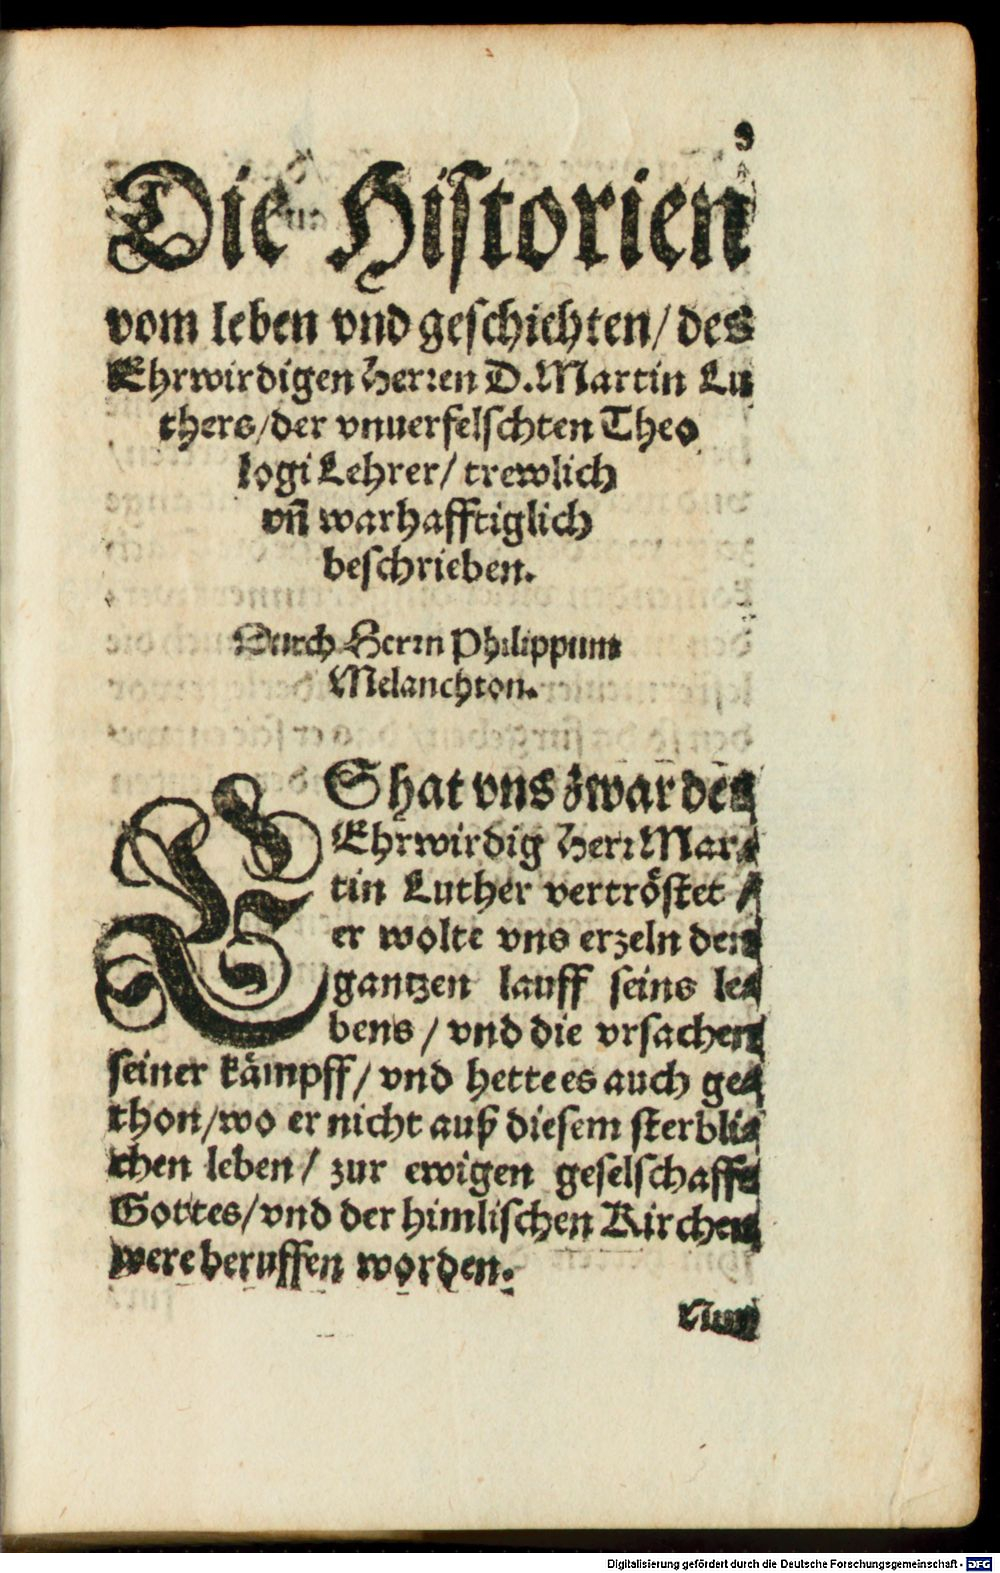 9
Die Historien
vom leben vnd geschichten/ des
Ehrwirdigen Herren D. Martin Lu
thers/der vnuerfelschten Theo
logi Lehrer/ trewlich
vñ warhafftiglich
beschrieben.
Durch Herrn Philippum
Melanchton.
ES hat vns zwar der
Ehrwirdig Herr Mar-
tin Luther vertröstet /
er wolte vns erzeln den
gantzen lauff seins le-
bens / vnd die vrsachen
seiner kämpff/ vnd hette es auch ge-
thon/wo er nicht auß diesem sterbli-
chen leben/ zur ewigen geselschafft
Gottes/ vnd der himlischen Kirchen
were beruffen worden.
Nun
Digitalisierung gefördert durch die Deutsche Forschungsgemeinschaft - DFG